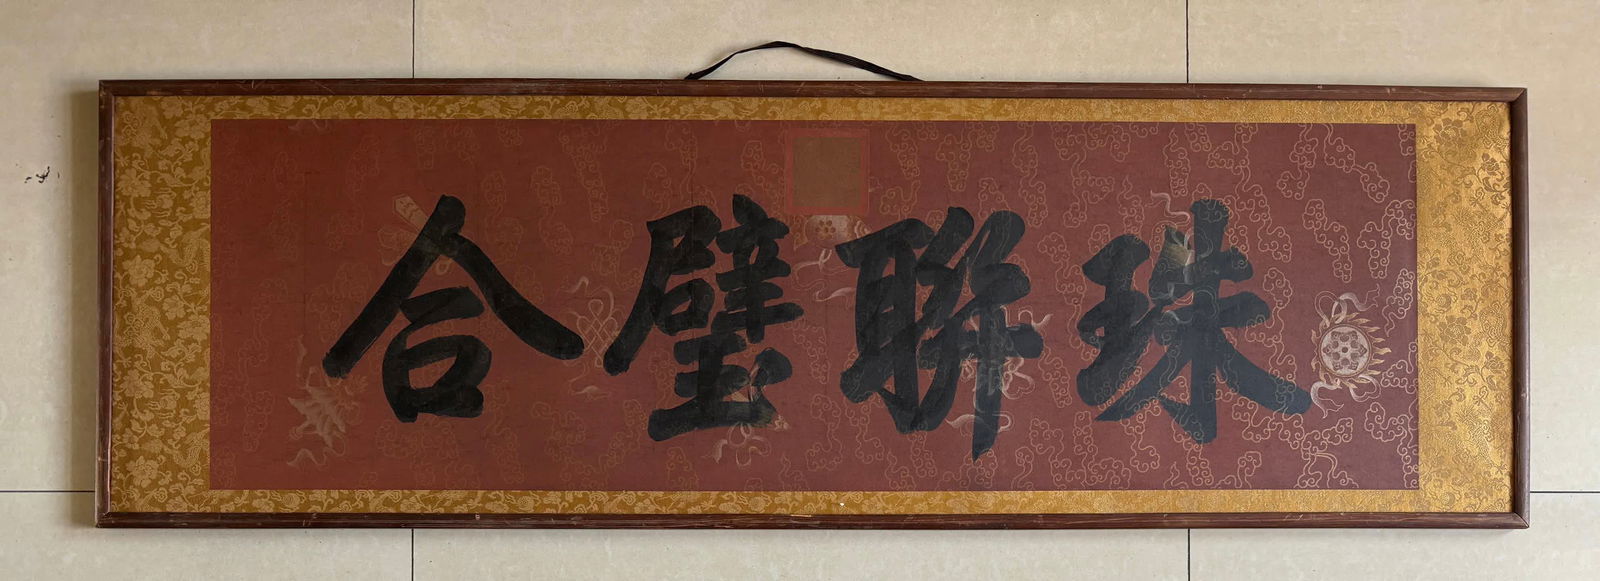 珠聯璧合